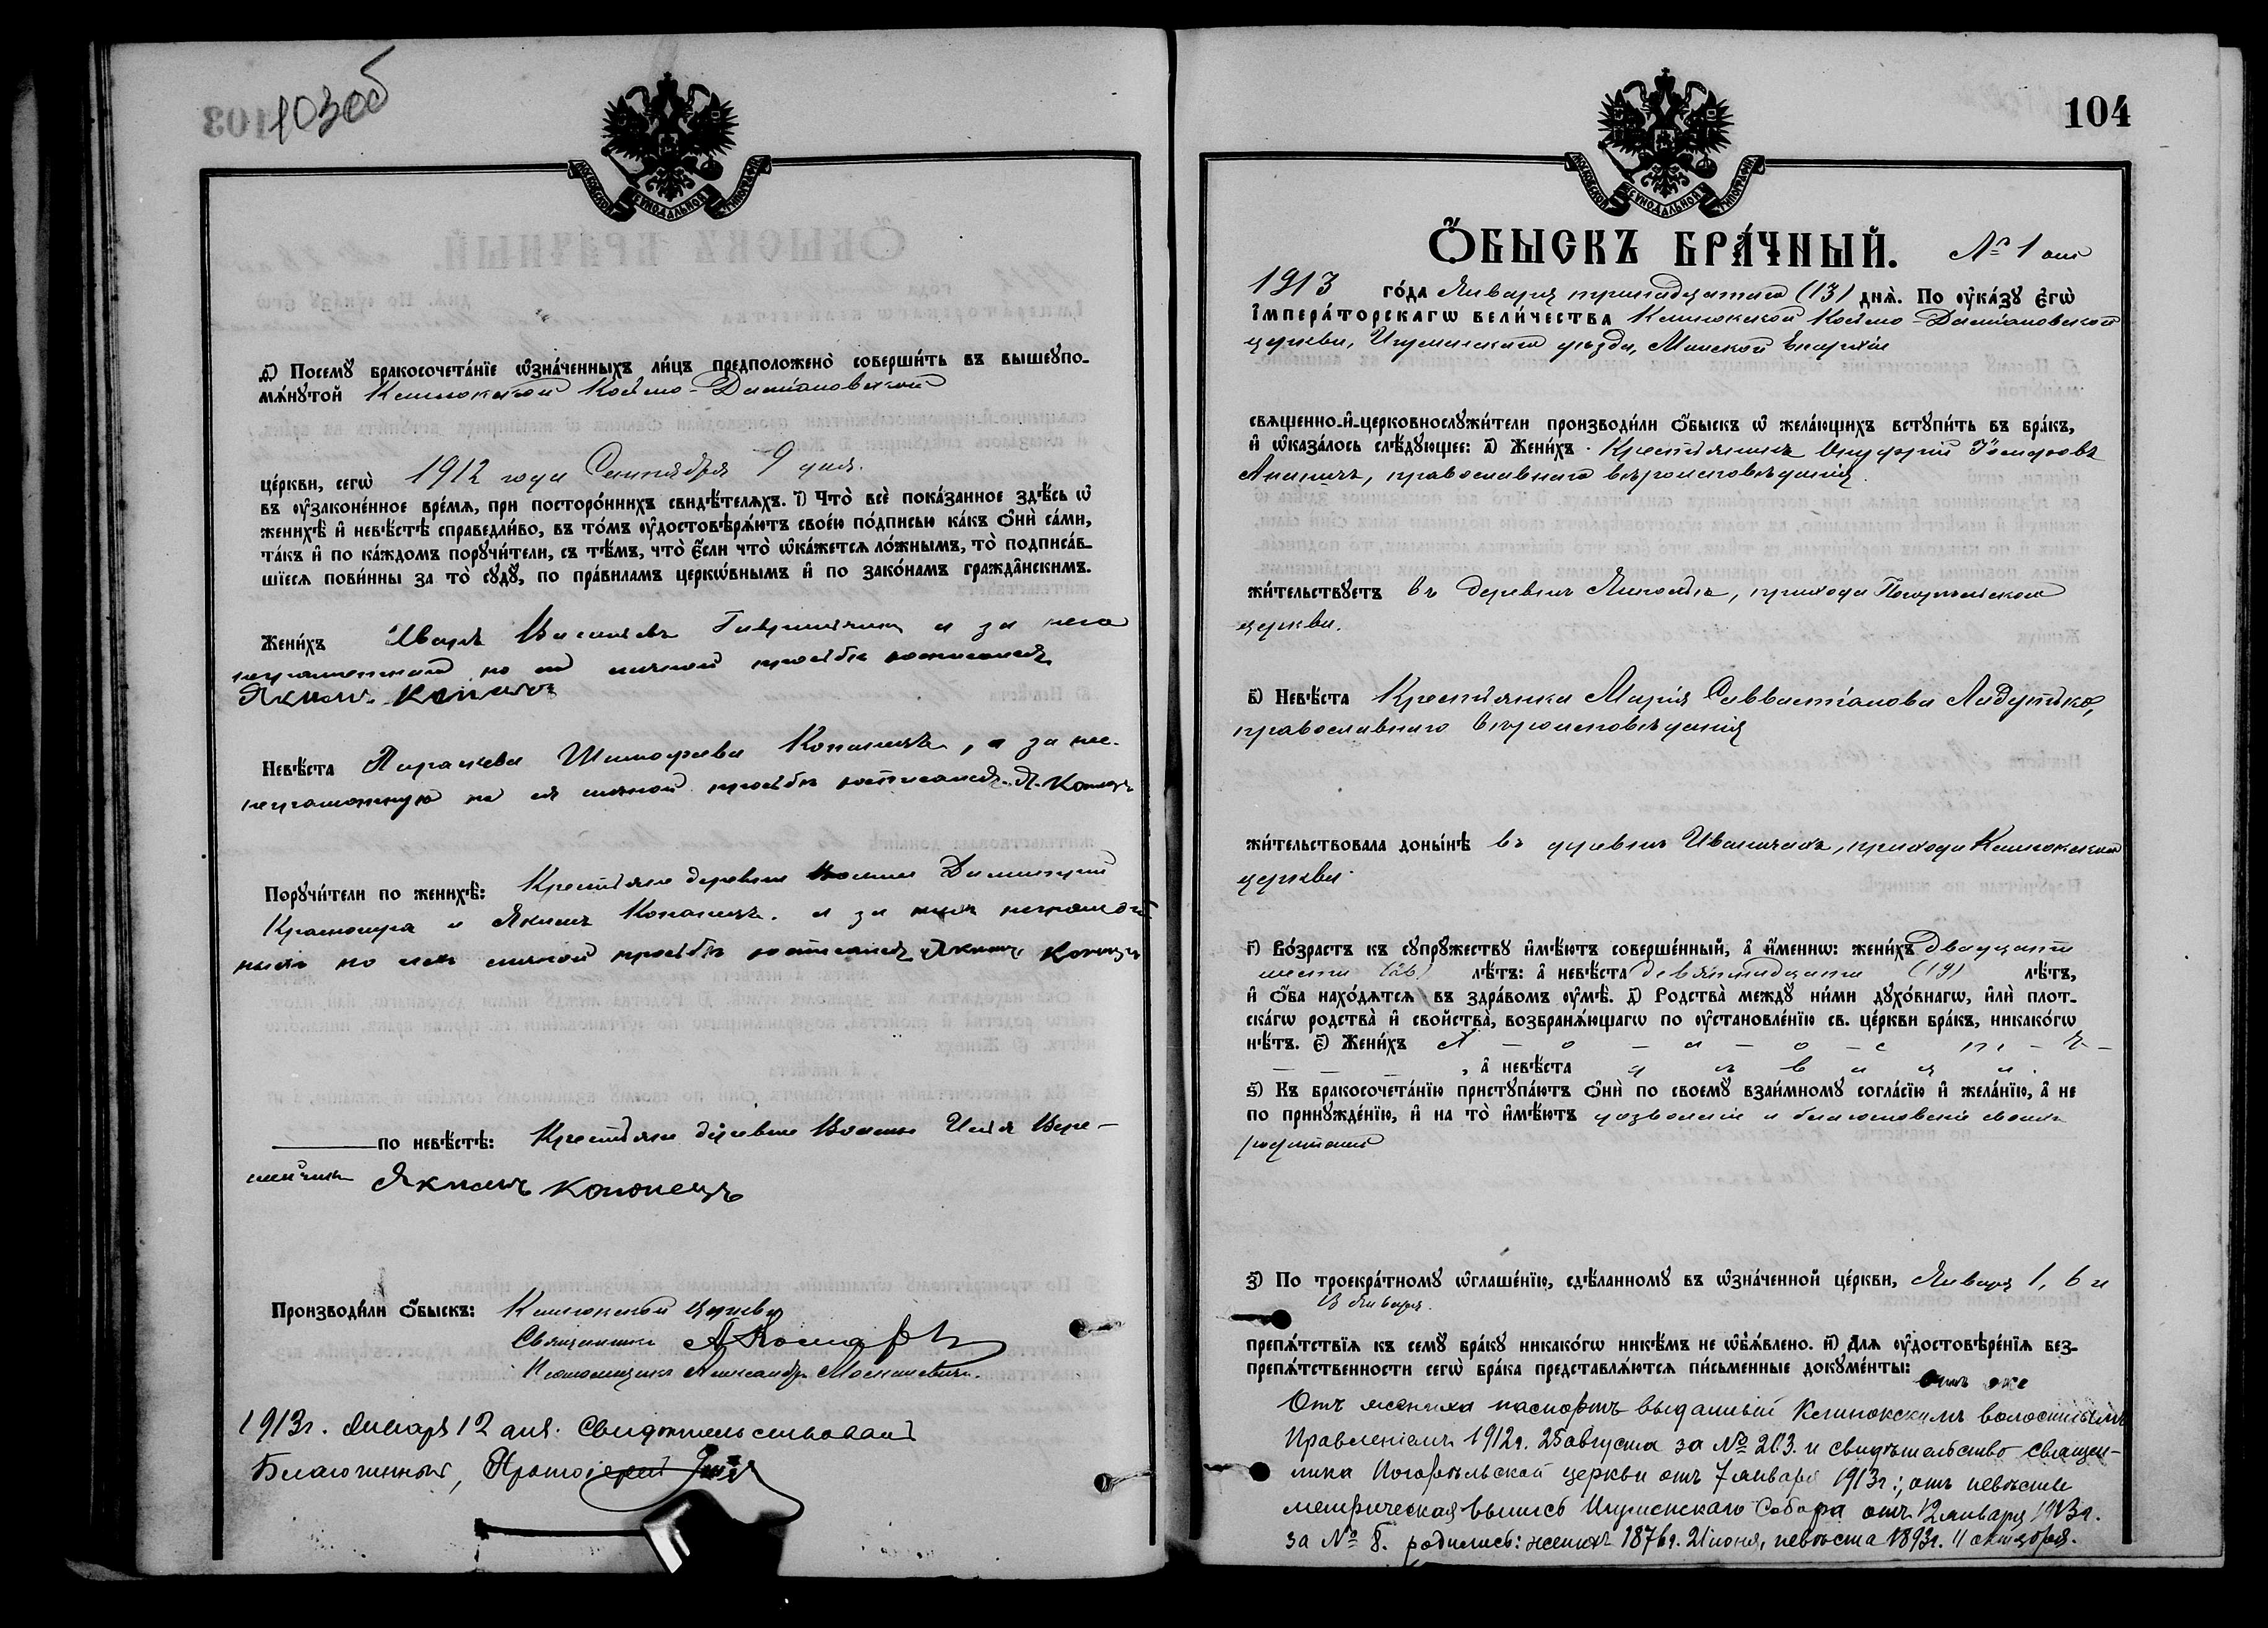 103об
МОСКОВСКОЙ СѴНОДАЛЬНОЙ ТИПОГРАФІИ
д҃) Посемꙋ̀ бракосочета́нїе ѡ҆зна́ченныхъ ли́цъ предположено̀ соверши́ть въ вышеꙋпо-
мѧ́нꙋтой Клинокской Космо-Даміановской
це́ркви, сегѡ̀ 1912 года Сентября 9 дня.
въ ᲂу҆зако́ненное вре́мѧ, при посторо́ннихъ свидѣ́телѧхъ. і҃) Что̀ всѐ пока́занное здѣ́сь ѡ҆
женихѣ̀ и҆ невѣ́стѣ справедли́во, въ то́мъ ᲂу҆достовѣрѧ́ютъ свое́ю по́дписью ка́къ ѻ҆нѝ са́ми,
та́къ и҆ по ка́ждомъ порꙋчи́тели, съ тѣ́мъ, что̀ є҆́сли что̀ ѡ҆ка́жетсѧ ло́жнымъ, то̀ подписа́в-
шїесѧ пови́нны за то̀ сꙋдꙋ̀, по пра́виламъ церкѡ́внымъ и҆ по зако́намъ гражда́нскимъ.
Жени́хъ Иванъ Васильевъ и за него
неграмотнаго по его личной просьбѣ росписался
Якимъ Конецъ
Невѣ́ста Параскева Тимофеева , а за нее
неграмотную по ея личной просьбѣ росписался Я. Конецъ
Порꙋчи́тели по женихѣ̀: Крестьяне деревни Димитрій
и Якимъ и за нихъ неграмот-
ныхъ по ихъ личной просьбѣ росписался Якимъ Конецъ
по невѣ́стѣ: Крестьяне деревни Илья Вере-
Якимъ Кононецъ
Производи́ли ѻ҆́быскъ: Клинокской церкви
Священникъ А
Псаломщикъ Александръ
1913г. Января 12 дня. Свидѣтельствовалъ
Благочинный, Протоіерей
104
МОСКОВСКОЙ СѴНОДАЛЬНОЙ ТИПОГРАФІИ
Ѻ҆́БЫСКЪ БРА́ЧНЫЙ. № 1 ый
1913 го́да Января тринадцатаго (13) днѧ̀. По ᲂу҆ка́зꙋ є҆гѡ̀
і҆мпера́торскагѡ вели́чества Клинокской Космо-Даміановской
церкви, Игуменскаго уѣзда, Минской Епархіи
свѧще́нно-и҆-церковнослꙋжи́тели производи́ли ѻ҆́быскъ ѡ҆ жела́ющихъ встꙋпи́ть въ бра́къ,
и҆ ѡ҆каза́лось слѣ́дꙋющее: а҃) Жени́хъ Крестьянинъ Онуфрій Іосифовъ
, православнаго вѣроисповѣданія.
жи́тельствꙋетъ въ деревнѣ , прихода Погорѣльской
церкви.
в҃) Невѣ́ста Крестьянка Марія Савватіанова Ладутько,
православнаго вѣроисповѣданія
жи́тельствовала доны́нѣ въ деревнѣ Иваничахъ, прихода Клинокской
церкви.
г҃) Во́зрастъ къ сꙋпрꙋ́жествꙋ и҆мѣ́ютъ соверше́нный, а҆ и҆́меннѡ: жени́хъ двадцати
шести (26) лѣ́тъ: а҆ невѣ́ста девятнадцати (19) лѣ́тъ,
и҆ ѻ҆́ба нахо́дѧтсѧ въ здра́вомъ ᲂу҆мѣ̀. д҃) Родства̀ междꙋ̀ ни́ми дꙋхо́внагѡ, и҆лѝ плот-
ска́гѡ родства̀ и҆ свойства̀, возбранѧ́ющагѡ по ᲂу҆становле́нїю св. це́ркви бра́къ, никако́гѡ
нѣ́тъ. є҃) Жени́хъ х – о – л – о – с – т – ъ –
– – – , а҆ невѣ́ста д ѣ в и ц а.
ѕ҃) Къ бракосочета́нїю пристꙋпа́ютъ ѻ҆нѝ по своемꙋ̀ взаи́мномꙋ согла́сїю и҆ жела́нїю, а҆ не
по принꙋжде́нїю, и҆ на то̀ и҆мѣ́ютъ дозволеніе и благословеніе своихъ
родителей
з҃) По троекра́тномꙋ ѡ҆глаше́нїю, сдѣ́ланномꙋ въ ѡ҆зна́ченной це́ркви, Января 1, 6 и
13 Января.
препѧ́тствїѧ къ семꙋ̀ бра́кꙋ никако́гѡ никѣ́мъ не ѡ҆б̾ѧ́влено. и҃) Длѧ ᲂу҆достовѣре́нїѧ без-
препѧ́тственности сегѡ̀ бра́ка представлѧ́ютсѧ пи́сьменные докꙋме́нты:
Отъ жениха паспортъ выданный Клинокскимъ волостнымъ
Правленіемъ 1912г. 25 августа за № 203. и свидѣтельство священ-
ника Погорѣльской церкви отъ 7 января 1913г:; отъ невѣсты
метрическая выпись Игуменскаго Собора отъ 12 января 1913г.
за № 8. родились: женихъ 1876г. 21 іюня, невѣста 1893г. 11 октября.